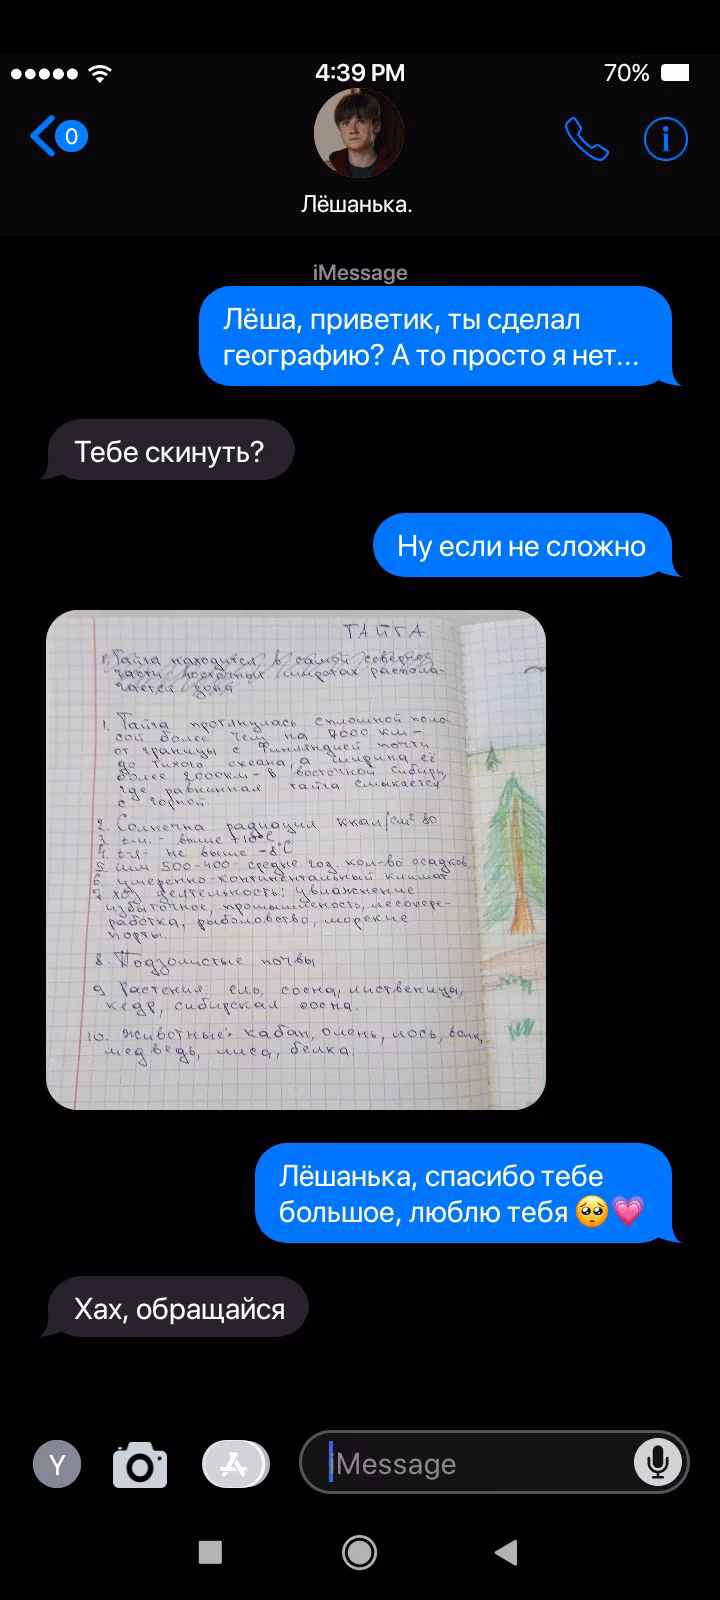 4:39 PM
70%
0
Лёшанька.
iMessage
Лёша, приветик, ты сделал
географию? А то просто я нет...
Тебе скинуть?
Ну если не сложно
ТАЙГА
1. Тайга находится в самой северной
части восточных широтах распола-
гается зона
1. Тайга протянулась сплошной поло-
сой более чем на 7000 км -
от границы с Финляндией почти
до тихого океана, а ширина её
более 2000км - в восточной сибири,
где равнинная тайга смыкается
с горной.
2. Солнечна радиация ккал/см² 80
3. t-и. - выше +10°C
4. t-я- не выше -8°C
5. мм 500-400- средне год. кол-во осадков
6. умеренно-континентальный климат
7. хоз деятельность: увлажнение
избыточное, промышленость, лесопере-
работка, рыболовство, морские
порты.
8. Подзолистые почвы
9. Растения: ель, сосна, лиственица,
кедр, сибирская сосна.
10. Животные: кабан, олень, лось, волк,
медведь, лиса, белка.
Лёшанька, спасибо тебе
большое, люблю тебя 🥺💗
Хах, обращайся
Y
iMessage